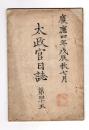 慶應四年戊辰秋七月
太政官日誌
第四十五